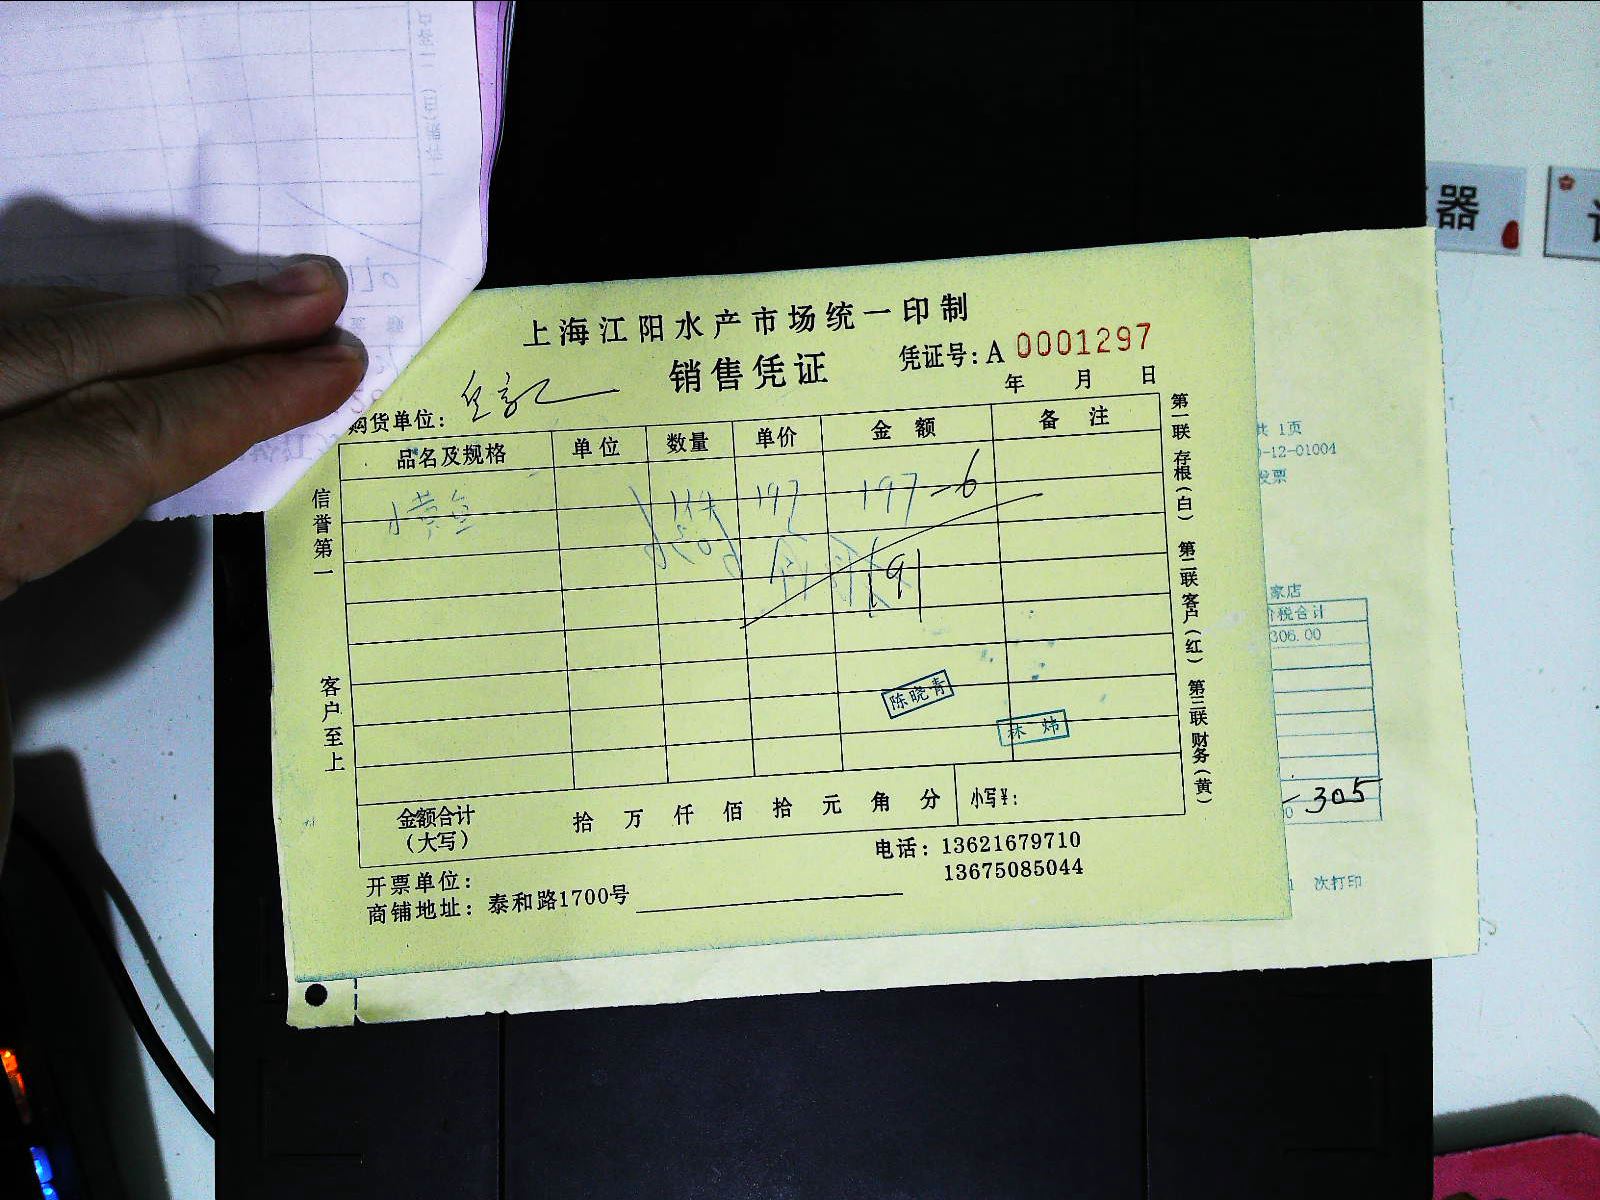 器
上海江阳水产市场统一印制
销售凭证
凭证号: A 0001297
年 月 日
购货单位:
品名及规格 单位 数量 单价 金额 备注
小黄鱼 197 197-6
191
陈晓青
林炜
金额合计
(大写)
拾 万 仟 佰 拾 元 角 分 小写¥:
开票单位:
电话: 13621679710
13675085044
商铺地址: 泰和路1700号
信誉第一
客户至上
第一联 存根(白) 第二联 客户(红) 第三联 财务(黄)
共 1页
-12-01004
发票
家店
价税合计
306.00
305
次打印
170